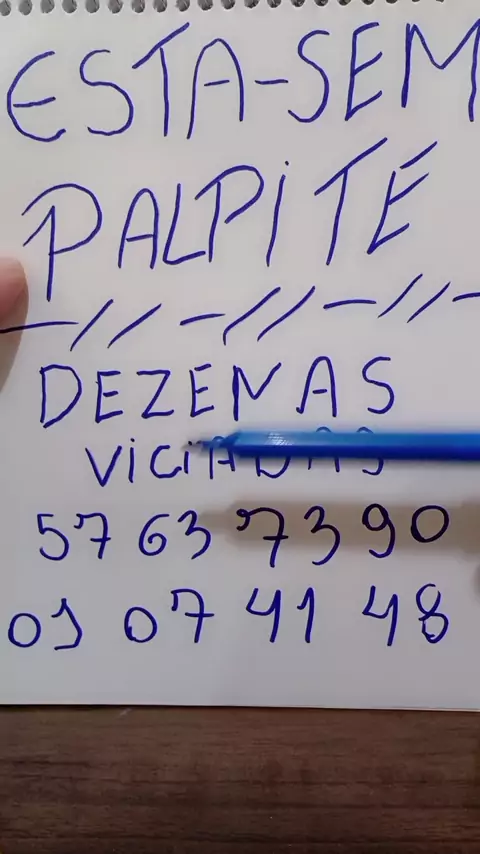 ESTA-SEM
PALPITE
DEZENAS
VICIADAS
57 63 73 90
01 07 41 48